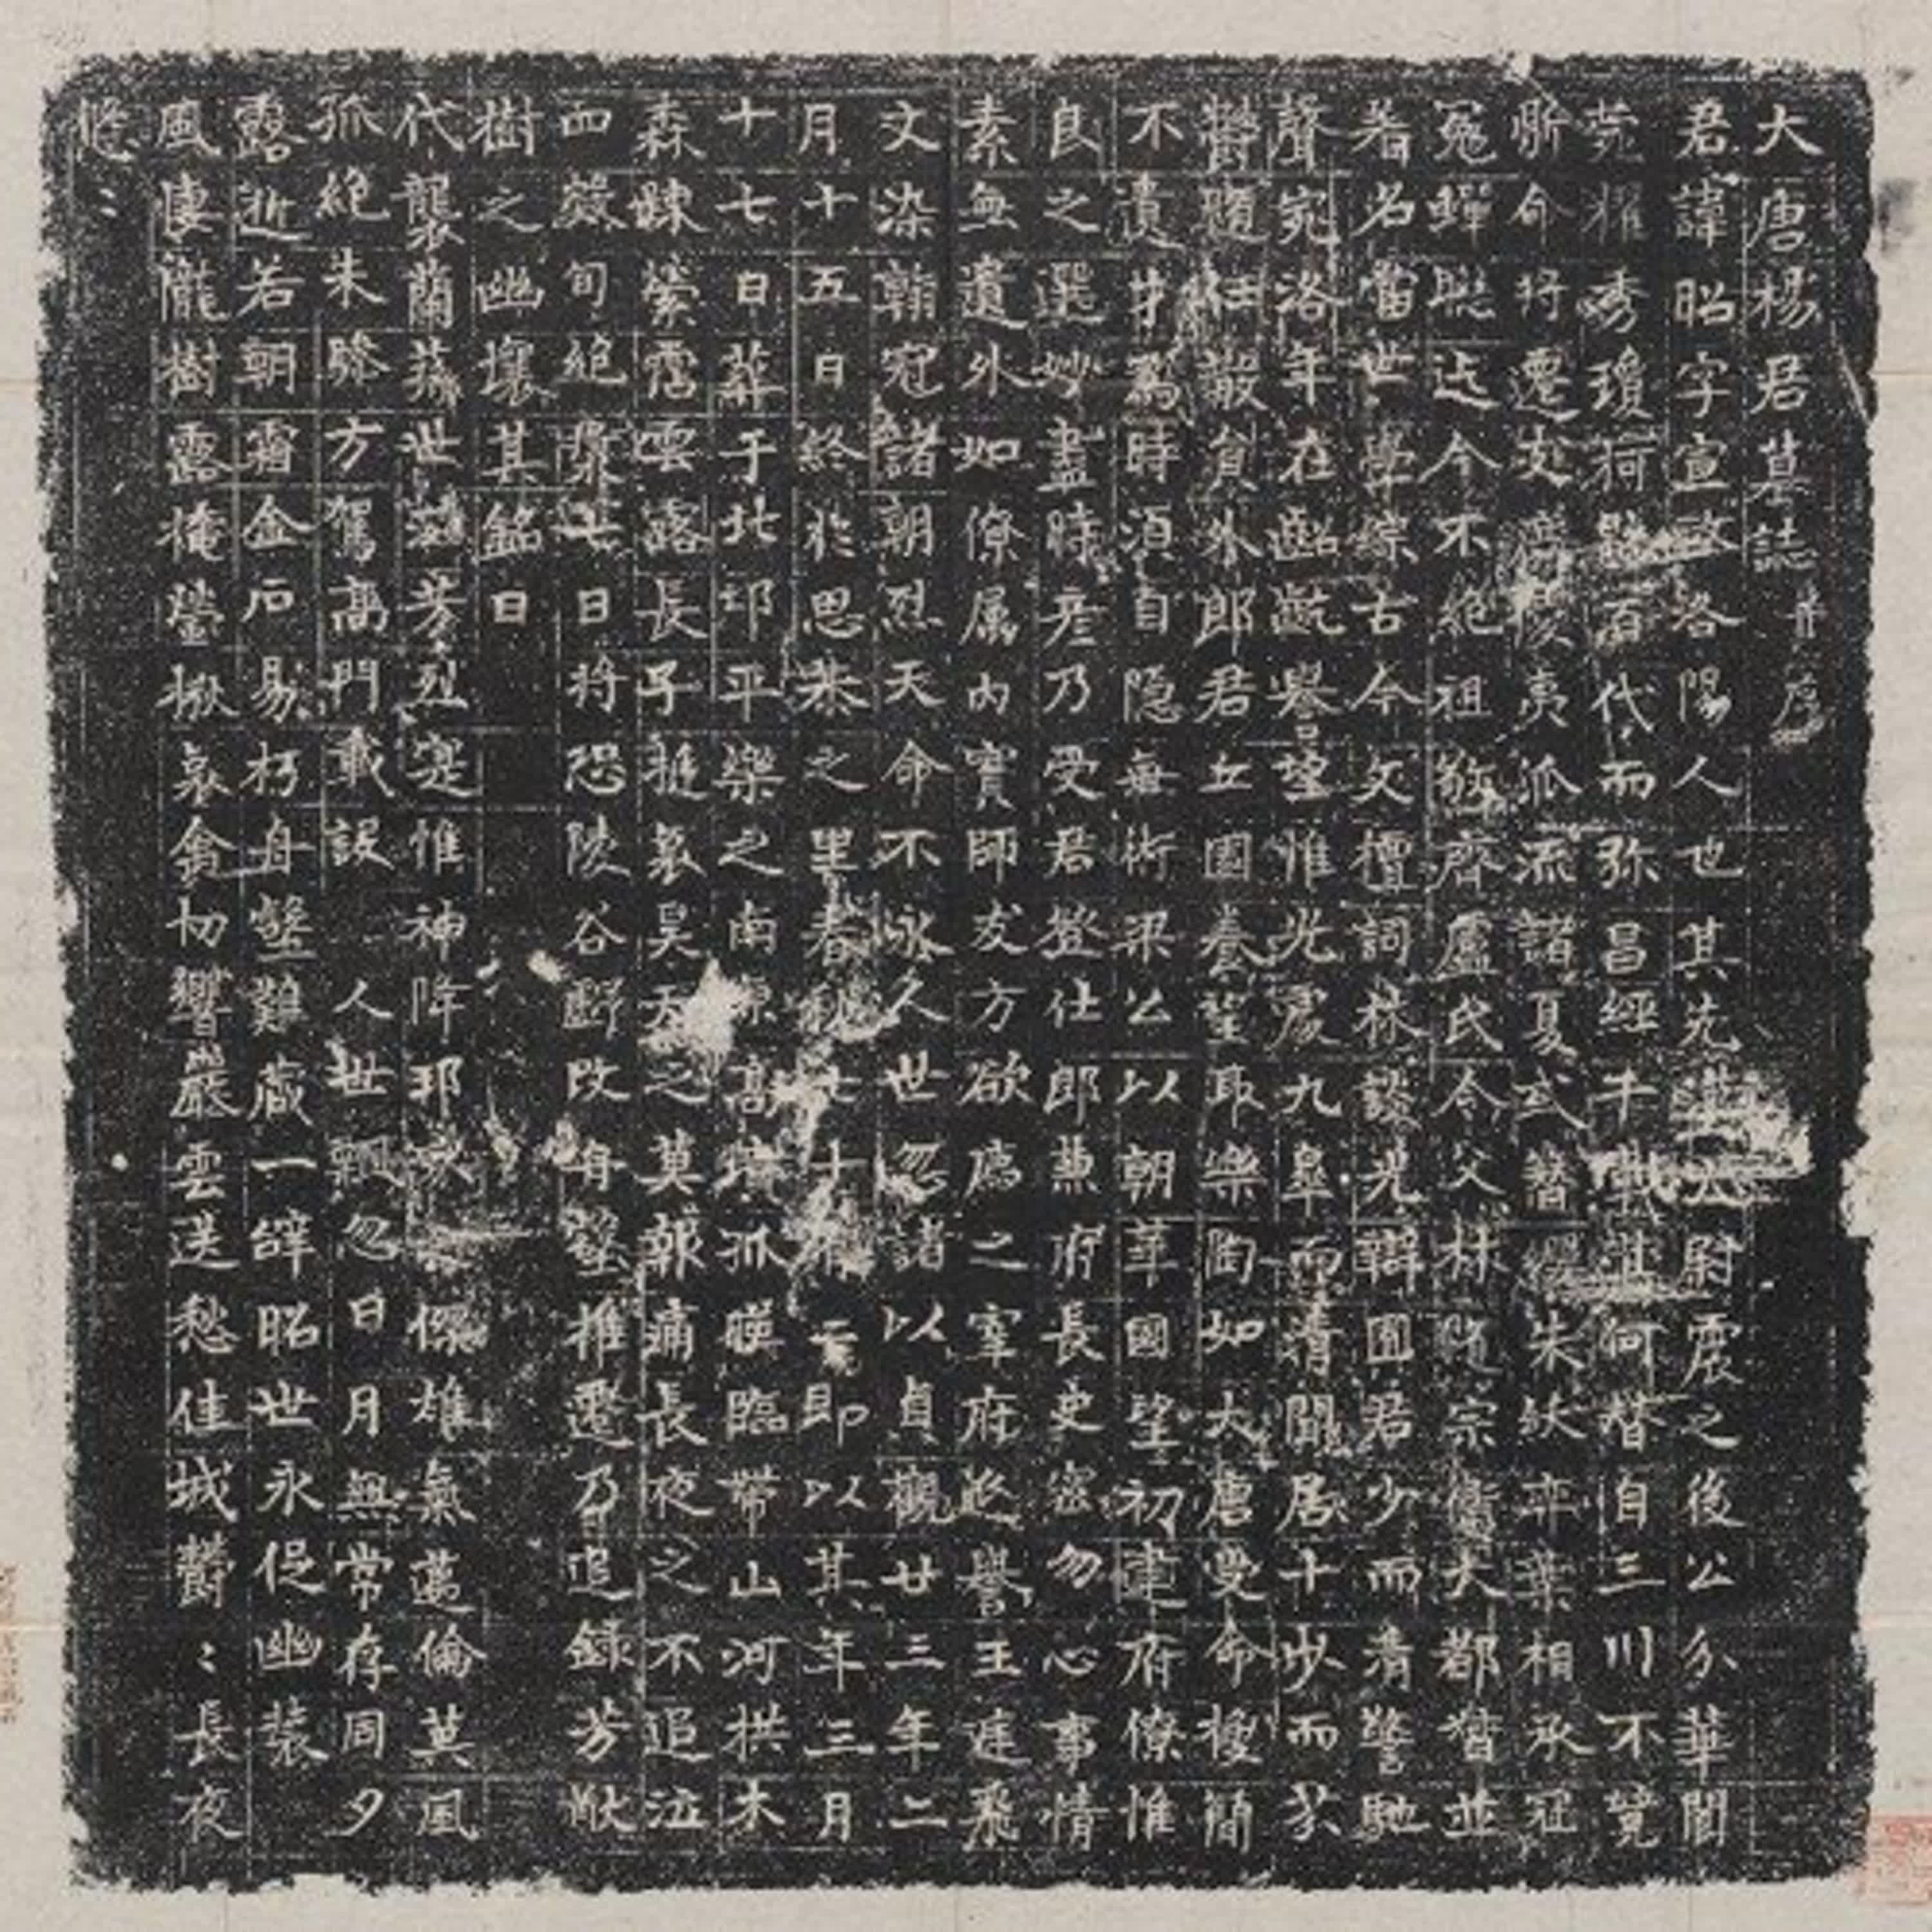 大唐楊君墓誌并序
君諱昭字宣政洛陽人也其先漢太尉震之後公分華閥
菀擢秀瓊荷百代而弥昌經千載自三川不竟
斯命將遷夷派流諸夏式朱紱弈葉相承冠
冕蟬聮迄今不絕祖敬齊盧氏令父林隨宗衛大都督並
著名當世學綜古今文檀詞林談光辯囿君少而清警馳
聲宛洛年在齠齔譽望惟允震九皋而清聞居十步而芬
鬱隨任散貟外郎君丘園養望取樂陶如大唐受命擾簡
不遺才為時須自隱每術梁公以朝華國望初建府僚惟
良之選妙盡時彥乃受君登仕郎兼府長史密勿心事情
素無遺外如僚属內實師友方欲為之宰府延譽王庭飛
文染翰冠諸朝烈天命不永人世忽諸以貞觀廿三年二
月十五日終於思恭之里春秋七十有二即以其年三月
十七日葬于北邙平樂之南原高墳孤暎臨帶山河拱木
森疎縈霑雲露長子挺哀昊天之莫報痛長夜之不追泣
血蕟旬絕漿七日將恐陵谷斯改舟壑推遷乃追録芳猷
樹之幽壤其銘曰
代襲蘭蓀世茲芳烈寔惟神降邦傑雄氣邁倫莫風
孤絕朱驂方駕高門載設人世飄忽日月無常存同夕
露逝若朝霜金石易朽舟壑難藏一辭昭世永促幽裝
風悽隴樹露掩塋楸哀禽切響巖雲送愁佳城鬱〻長夜
悠〻